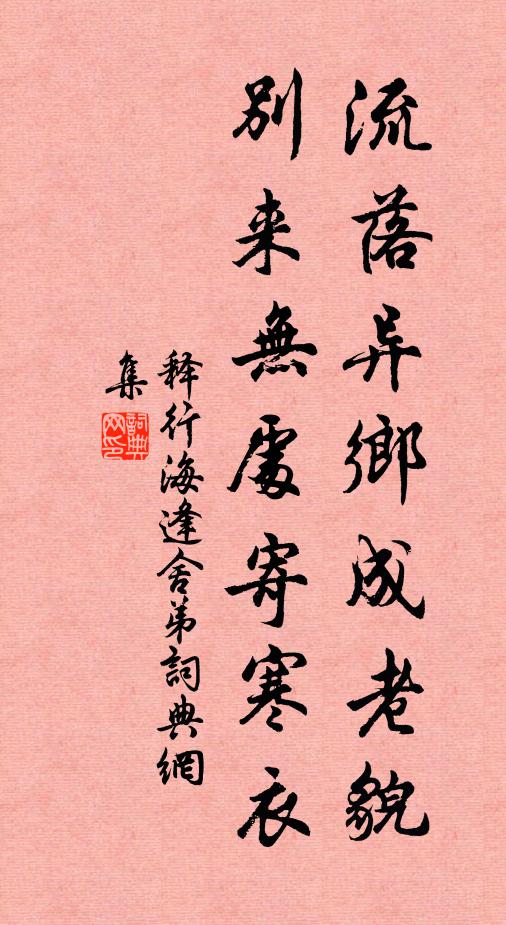 流落异鄉成老貌
别来無處寄寒衣
释行海逢舍弟詞典網
集
詞典网印